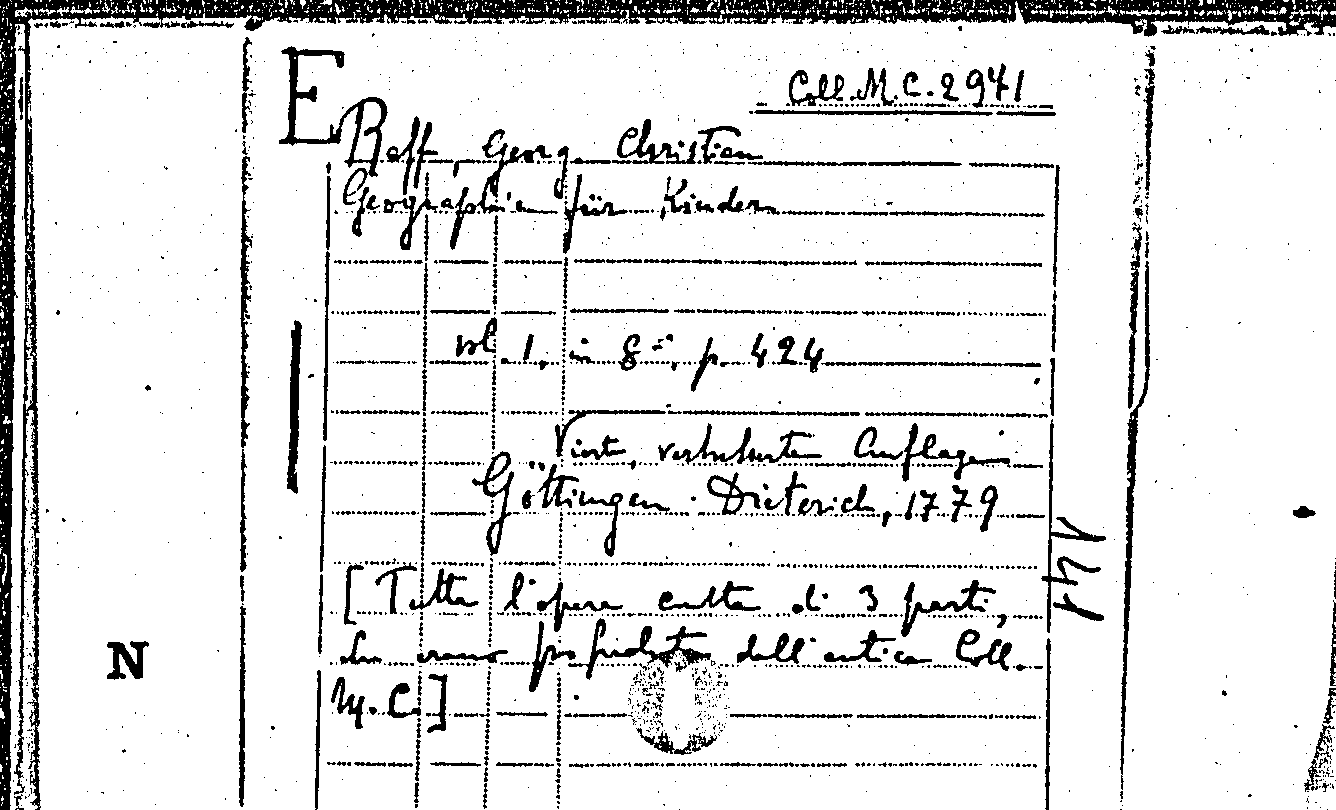 E
Coll. M.C. 2971
Raff, Georg. Christian
Geographie für Kinder
vol. 1, in 8°, p. 424
Vierte, verbesserte Auflage
Göttingen. Dieterich, 1779
[Tutta l'opera di 3 parti,
proprietà dell'antica Coll.
M.C.]
N